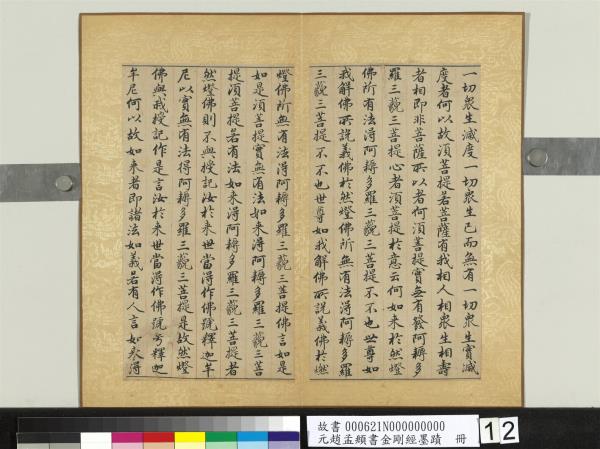 一切衆生滅度一切衆生已而無有一切衆生實滅
度者何以故須菩提若菩薩有我相人相衆生相壽
者相即非菩薩所以者何須菩提實無有發阿耨多
羅三藐三菩提心者須菩提於意云何如来於然燈
佛所有法得阿耨多羅三藐三菩提不不也世尊如
我解佛所説義佛於然燈佛所無有法得阿耨多羅
三藐三菩提不不也世尊如我解佛所説義佛於燃
燈佛所無有法得阿耨多羅三藐三菩提佛言如是
如是須菩提實無有法如来得阿耨多羅三藐三菩
提須菩提若有法如来得阿耨多羅三藐三菩提者
然燈佛則不與授記汝於来世當得作佛號釋迦牟
尼以實無有法得阿耨多羅三藐三菩提是故然燈
佛與我授記作是言汝於来世當得作佛號号釋迦
牟尼何以故如来者即諸法如義若有人言如来得
故書 000621N000000000
元趙孟頫書金剛經墨蹟 冊
12